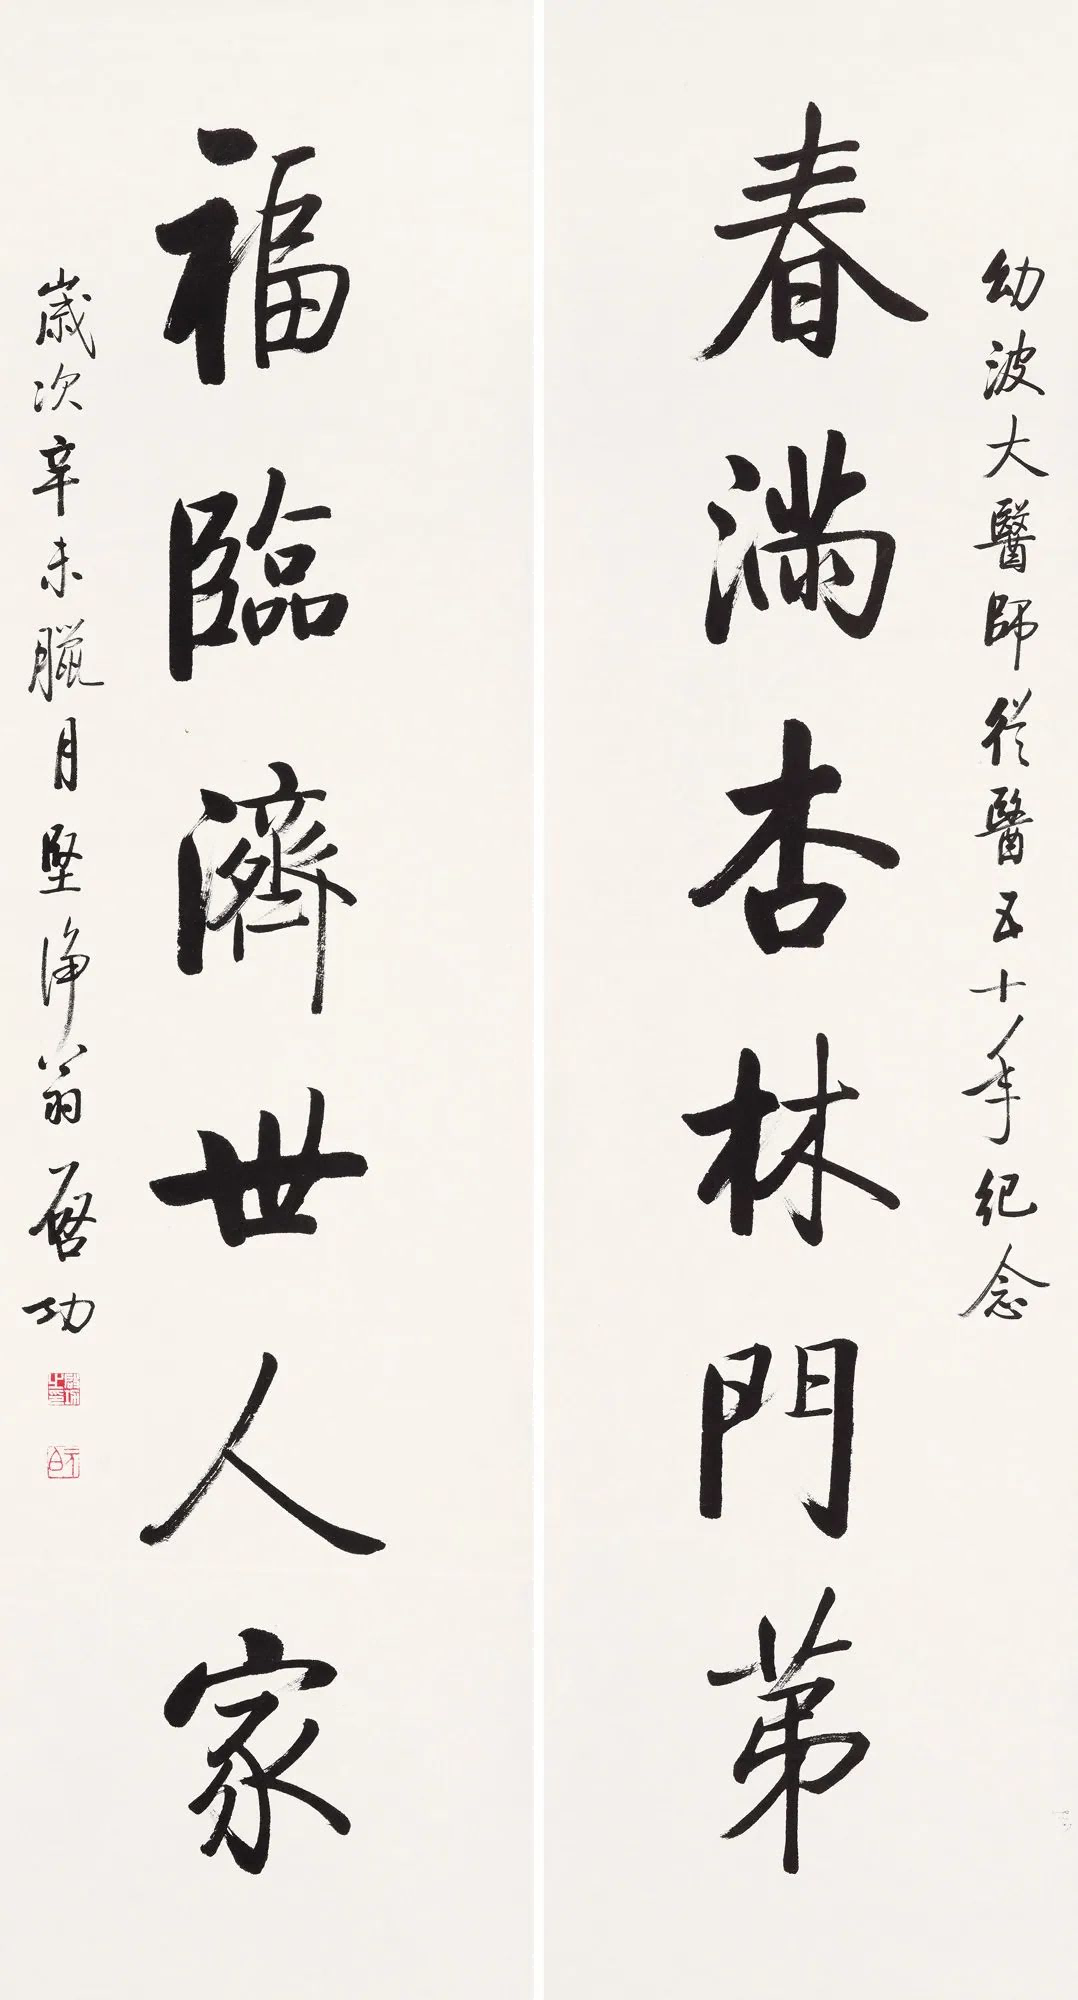 幼波大醫師從醫五十年紀念
春滿杏林門第
福臨濟世人家
歲次辛未臘月堅淨翁啓功
啟功之印
元白